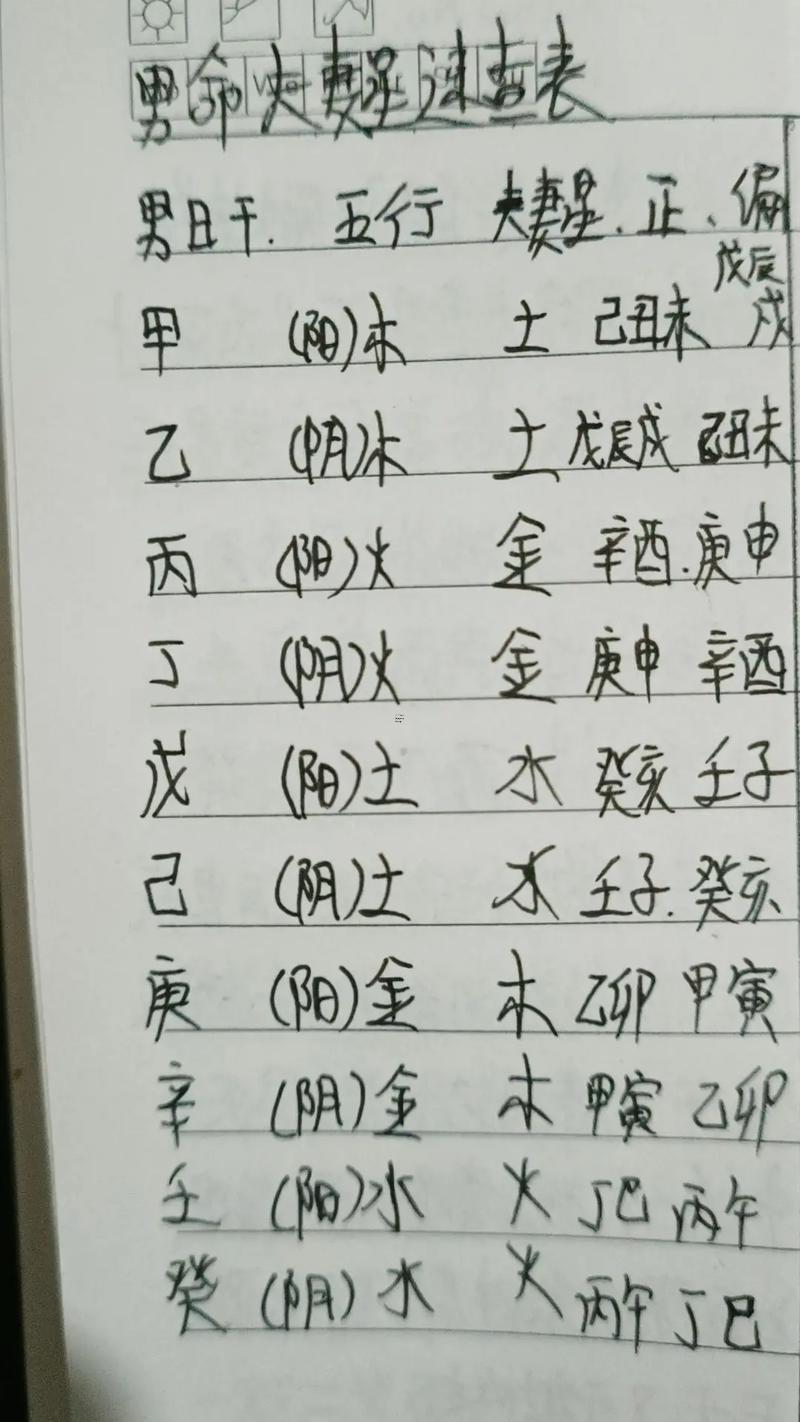 男命夫妻星速查表
男日干. 五行 夫妻星. 正、偏
戊辰
甲 (阳)木 土 己丑未 戌
乙 (阴)木 土 戊辰戌 己丑未
丙 (阳)火 金 辛酉.庚申
丁 (阴)火 金 庚申 辛酉
戊 (阳)土 水 癸亥 壬子
己 (阴)土 水 壬子.癸亥
庚 (阳)金 木 乙卯 甲寅
辛 (阴)金 木 甲寅 乙卯
壬 (阳)水 火 丁巳 丙午
癸 (阴)水 火 丙午 丁巳